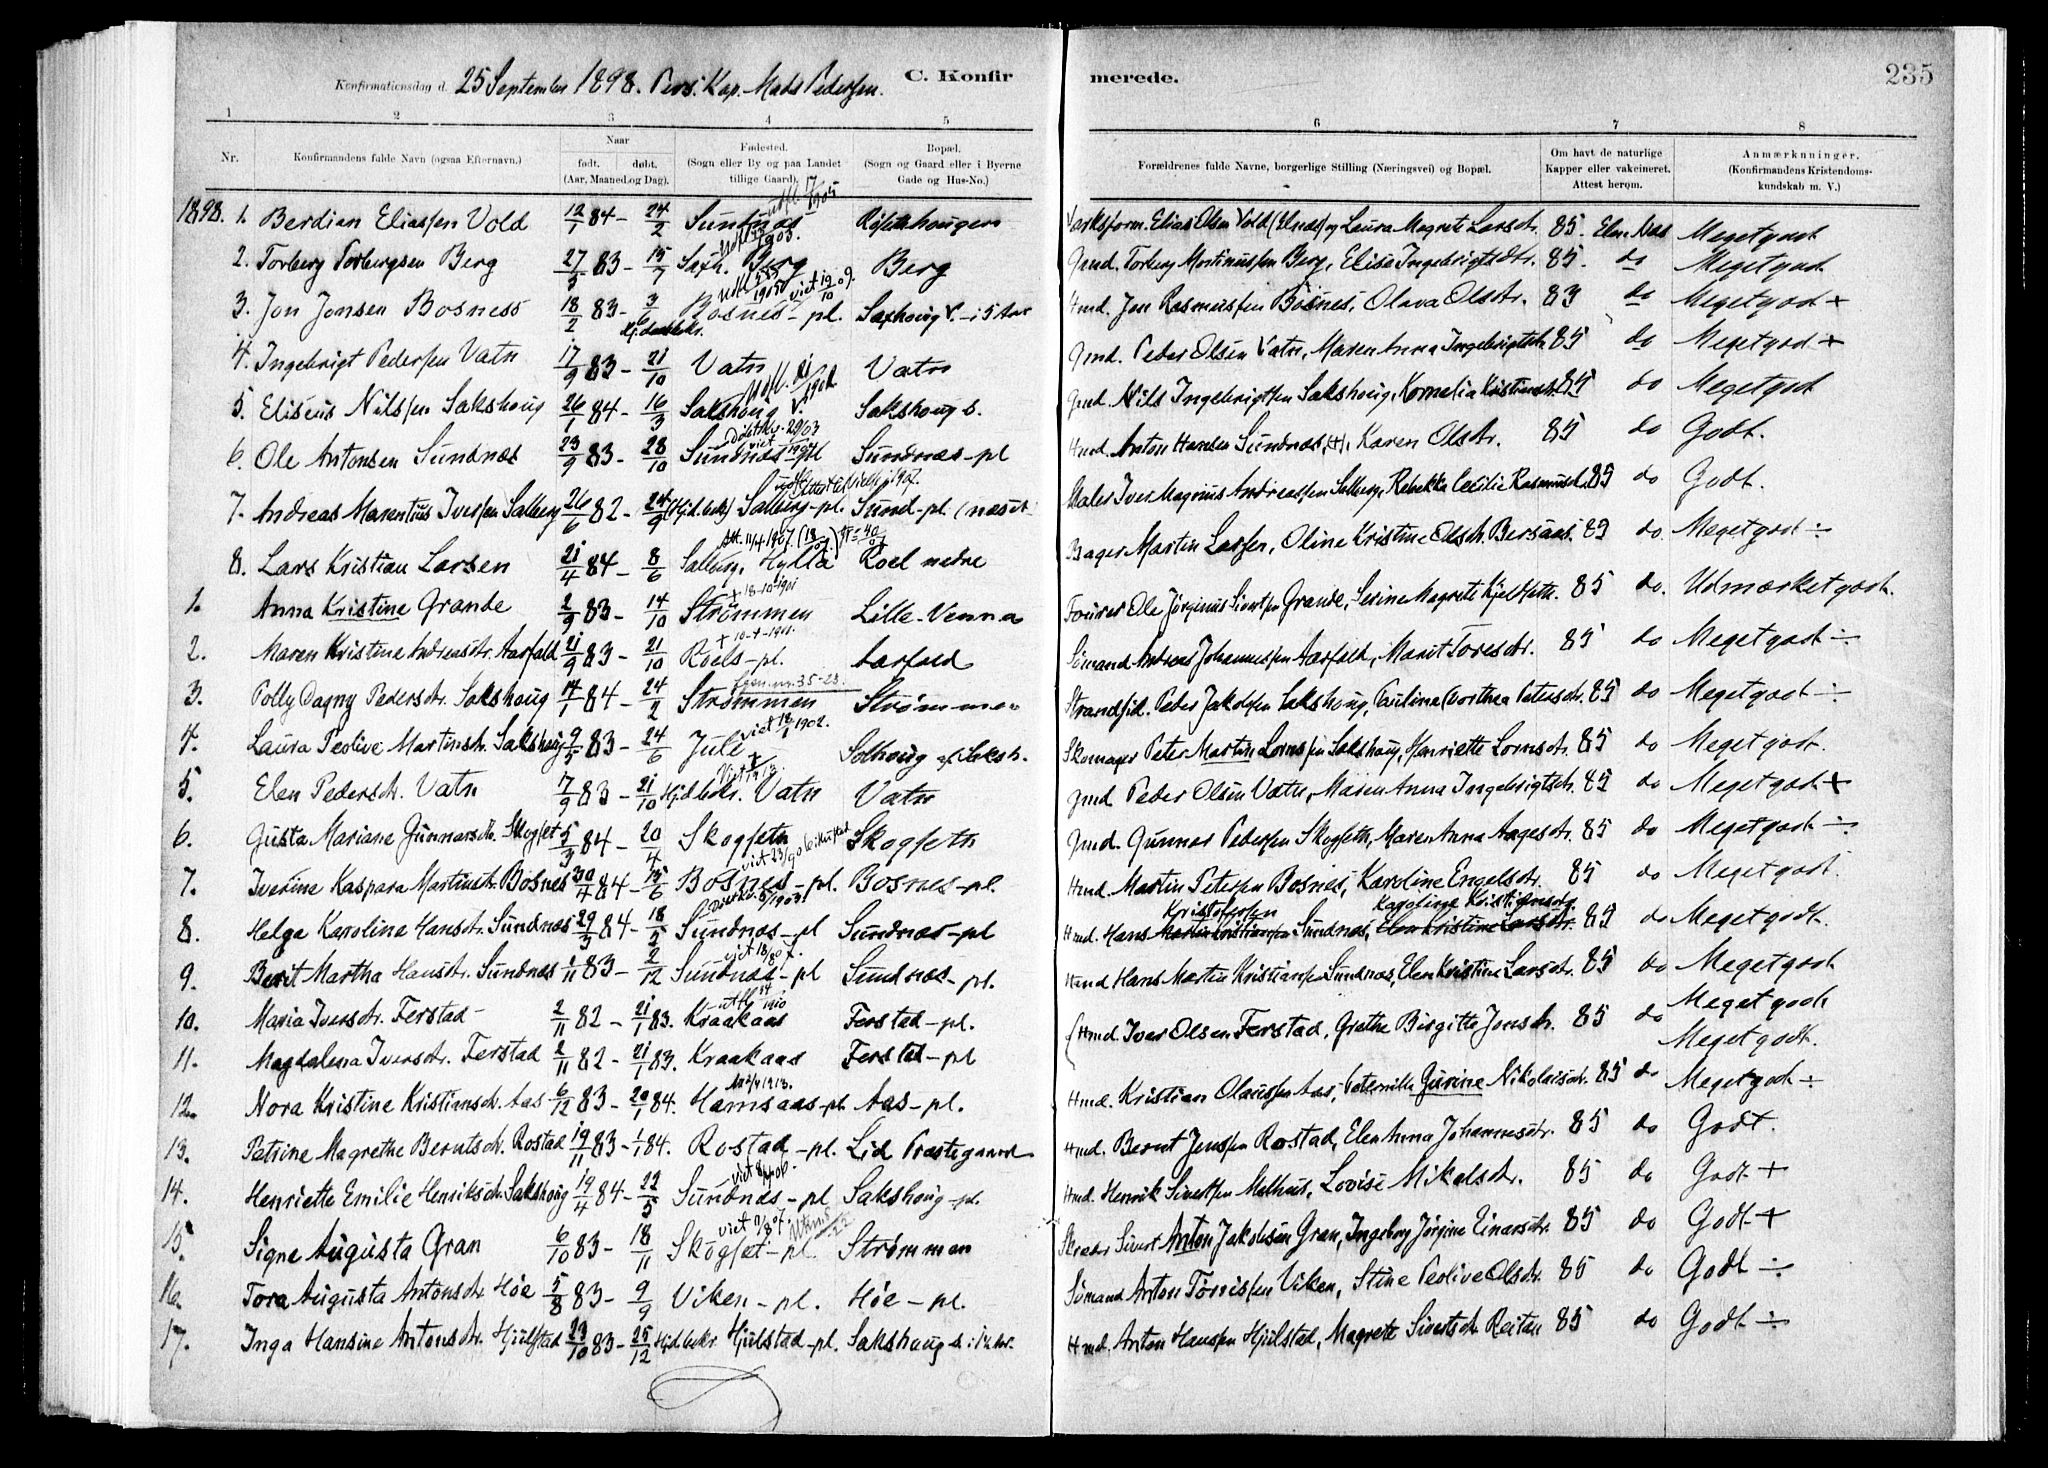 Konfirmationsdag d. 25 September 1898. Pers. Kap. Mads Pedersen. C. Konfir merede. 235
1 2 3 4 5 6 7 8
Nr. Konfirmandens fulde Navn (ogsaa Efternavn.) Naar født. døbt. (Aar, Maaned og Dag). Fødested. (Sogn eller By og paa Landet tillige Gaard). Bopæl. (Sogn og Gaard eller i Byerne Gade og Hus-No.) Forældrenes fulde Navne, borgerlige Stilling (Næringsvei) og Bopæl. Om havt de naturlige Kapper eller vakcineret. Attest herom. Anmærkninger. (Konfirmandens Kristendomskundskab m. V.)
1898. 1. Berdian Eliassen Vold 12/1 84 - 24/2 Sundnes Elias Olsen Vold (Elnæs) og Laura Magrete Larsdtr. 85. Eln. Næs Meget godt
2. Torberg Torbergsen Berg 27/3 83 - 15/7 Saxh. Berg Berg Gmd. Torberg Martinussen Berg, Elise Ingebrigtsdtr. 85. do Meget godt
3. Jon Jonsen Bosness 18/2 83 - 3/6 Hj.døbt bekr. Bosnes - pl. Saxhoug v. - i 5 Aar Hmd. Jon Rasmussen Bosnes, Olava Olsdtr. 83 do Meget godt +
4. Ingebrigt Pedersen Vatn 17/9 83 - 21/10 Vatn Vatn Gmd. Peder Olsen Vatn, Maren Anna Ingebrigtsdtr. 85 do Meget godt +
5. Eliseus Nilssen Sakshoug 26/1 84 - 16/3 Sakshoug v. Sakshoug s. Gmd. Nils Ingebrigtsen Sakshoug, Kornelia Kristinesdtr. 85 do Meget godt
6. Ole Antonsen Sundnæs 23/9 83 - 28/10 Sundnæs - pl Sundnæs - pl Hmd. Anton Hansen Sundnæs, (+), Karen Olsdtr. 85 do Godt.
7. Andreas Marentius Iversen Salberg 26/6 82 - 24/9 (Hjd. bek.) Salberg - pl. Sund - pl. (næset Maler Iver Magnus Andreassen Salberg, Rebekka Cecilie Rasmusd. 85 do Godt.
8. Lars Kristian Larsen 21/4 84 - 8/6 Salberg, Hylla Roel nedre Bager Martin Larsen, Oline Kristine Olsdtr. Bersaas. 83 do. Meget godt ÷
1. Anna Kristine Grande 2/9 83 - 14/10 Strømmen + 18-10-1901 Lille-Venna Fourer Ole Jørginus Sivertsen Grande, Serine Magrete Kjeldsdtr. 85 do. Udmærket godt.
2. Maren Kristine Andreasdtr. Aarfald 21/9 83 - 21/10 Roels - pl. + 10-4-1901. Aarfald Sømand Andreas Johannessen Aarfald, Marit Toresdtr. 85 do Meget godt ÷
3. Polly Dagny Pedersdtr. Sakshoug 14/1 84 - 24/2 Strømmen Strømmen Strandsid. Peder Jakobsen Sakshoug, Paulina Dorthea Petersdtr. 85 do Meget godt ÷
4. Laura Peolive Martinsdtr. Sakshoug 9/5 83 - 24/6 Jule viet 18/1 1902. Solhoug af Saksh. Skomager Peter Martin Lornssen Sakshoug, Henriette Lornsdtr. 85 do Meget godt.
5. Elen Pedersdtr. Vatn 17/9 83 - 21/10 Hjd. bekr. Vatn Vatn Gmd Peder Olsen Vatn, Maren Anna Ingebrigtsdtr. 85 do Meget godt +
6. Gusta Mariane Gunnarsdtr. Skogset 5/3 84 - 20/4 Skogseth Skogseth Gmd. Gunnar Pedersen Skogseth, Maren Anna Aagesdtr. 85 do Meget godt ÷
7. Iverine Kaspara Martinsdtr. Bosnes 30/4 84 - 15/6 Bosnes - pl. Bosnes - pl. Hmd. Martin Petersen Bosnes, Karoline Engelsdtr. 85 do Meget godt
8. Helga Karolina Hansdtr. Sundnæs 29/3 84 - 18/5 Sundnæs - pl Sundnæs - pl Hmd. Hans Martin Kristiansen Kristofersen Sundnæs, Elen Kristine Larsdtr. Karoline Kristiansdtr. 83 do Meget godt.
9. Berit Martha Hansdtr. Sundnæs 1/11 83 - 2/12 Sundnæs - pl Sundnæs - pl. Hmd Hans Martin Kristiansen Sundnæs, Elen Kristine Larsdtr. 85 do Meget godt
10. Maria Iversdtr. Ferstad - 2/11 82 - 21/1 83. Kraakaas Ferstad - pl. Hmd. Iver Olsen Ferstad, Grethe Birgitte Jonsdtr. 85 do Meget godt
11. Magdalena Iversdtr. Ferstad 2/11 82 - 21/1 83. Kraakaas Ferstad - pl Meget godt.
12. Nora Kristine Kristiansdtr. Aas 6/12 83 - 20/1 84. Hamsaas - pl. Aas - pl. Hmd. Kristian Olaussen Aas, Peternille Gurine Nikolaisdtr. 85 do Meget godt ÷
13. Petrine Magrethe Berntsdtr. Rostad 19/11 83 - 1/1 84. Rostad - pl. Lid Præstegaard Hmd. Bernt Jenssen Rostad, Elen Anna Johannesdtr. 85 do Godt.
14. Henriette Emilie Henriksdtr. Sakshoug 19/4 84 - 22/5 Sundnæs - pl Sakshoug - pl. Hmd. Henrik Sivertsen Melhus, Lovise Mikalsdtr. 85 do Godt +
15. Signe Augusta Gran 6/10 83 - 18/11 Skogset - pl. Strømmen Skræder Sivert Anton Jakobsen Gran, Ingeborg Jørgine Einarsdtr. 85 do Godt +
16. Tora Augusta Antonsdtr. Høe 5/8 83 - 9/9 Viken - pl. Høe - pl. Sømand Anton Tørrissen Viken, Stine Peolive Olsdtr. 85 do Godt ÷
17. Inga Hansine Antonsdtr. Hjulstad 23/10 83 - 25/12 Hjd. bekr. Hjulstad - pl. Sakshaug s. Hmd. Anton Hansen Hjulstad, Magrete Sivertsdtr. Reitan 85 do Godt ÷